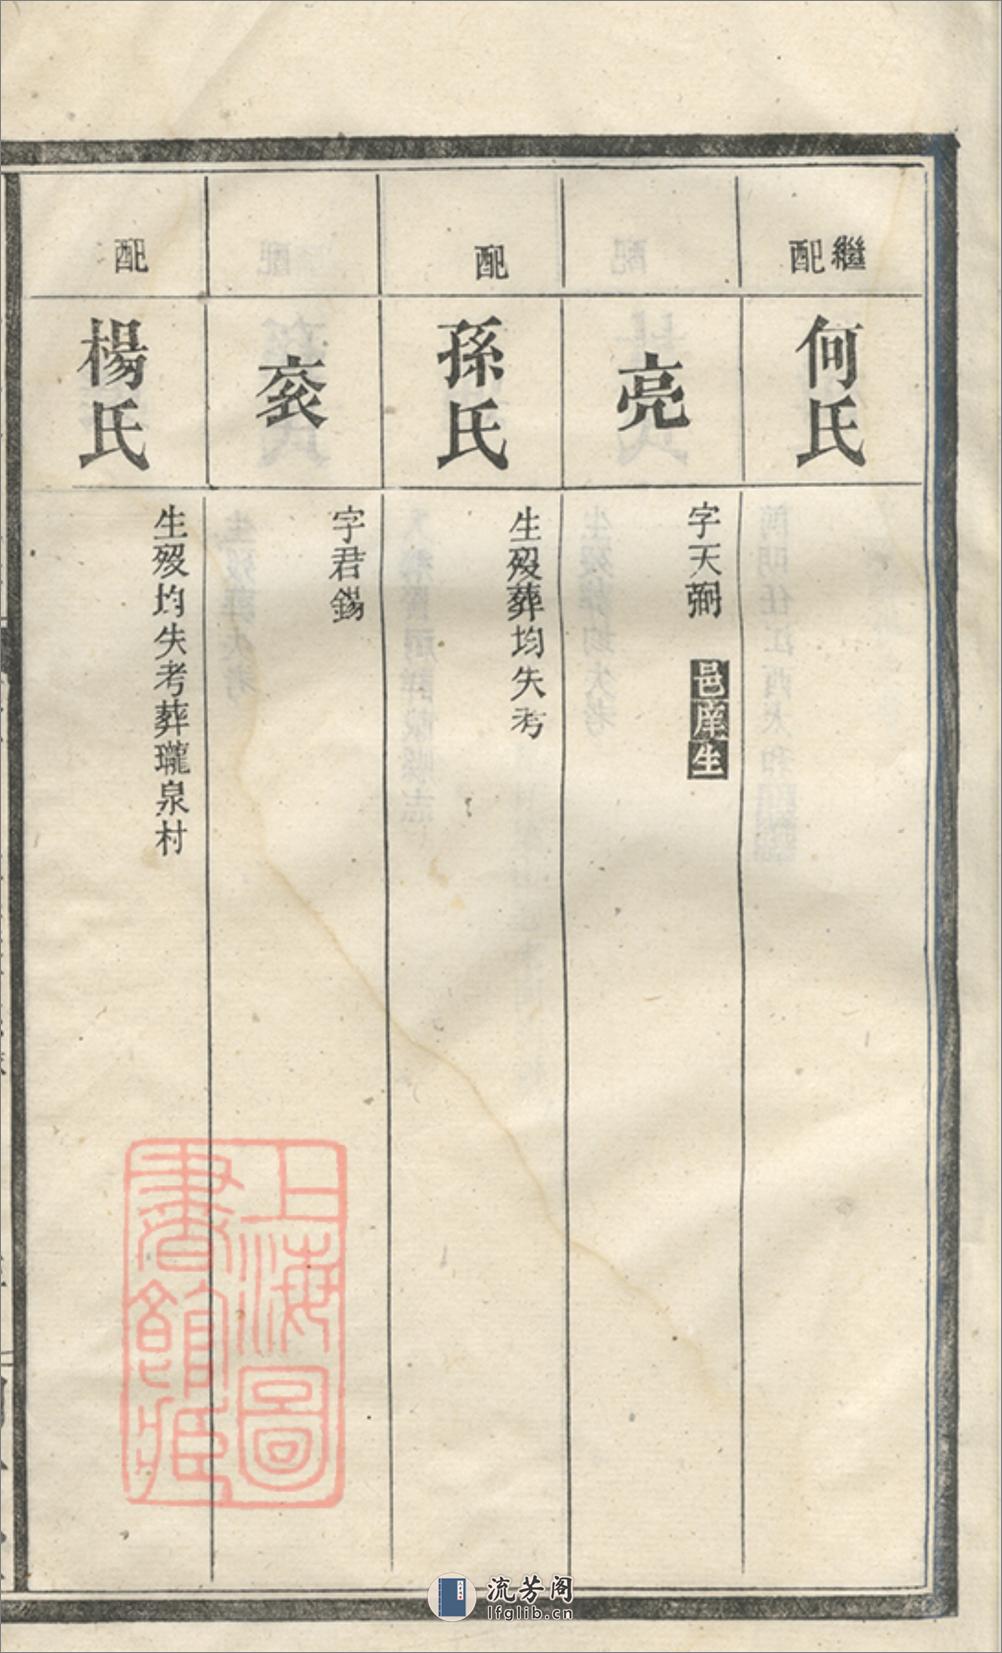 繼配
何氏
亮
字天弼 邑庠生
配
孫氏
生歿葬均失考
衮
字君錫
配
楊氏
生歿均失考葬瓏泉村
上海圖書館藏
流芳阁
lfglib.cn